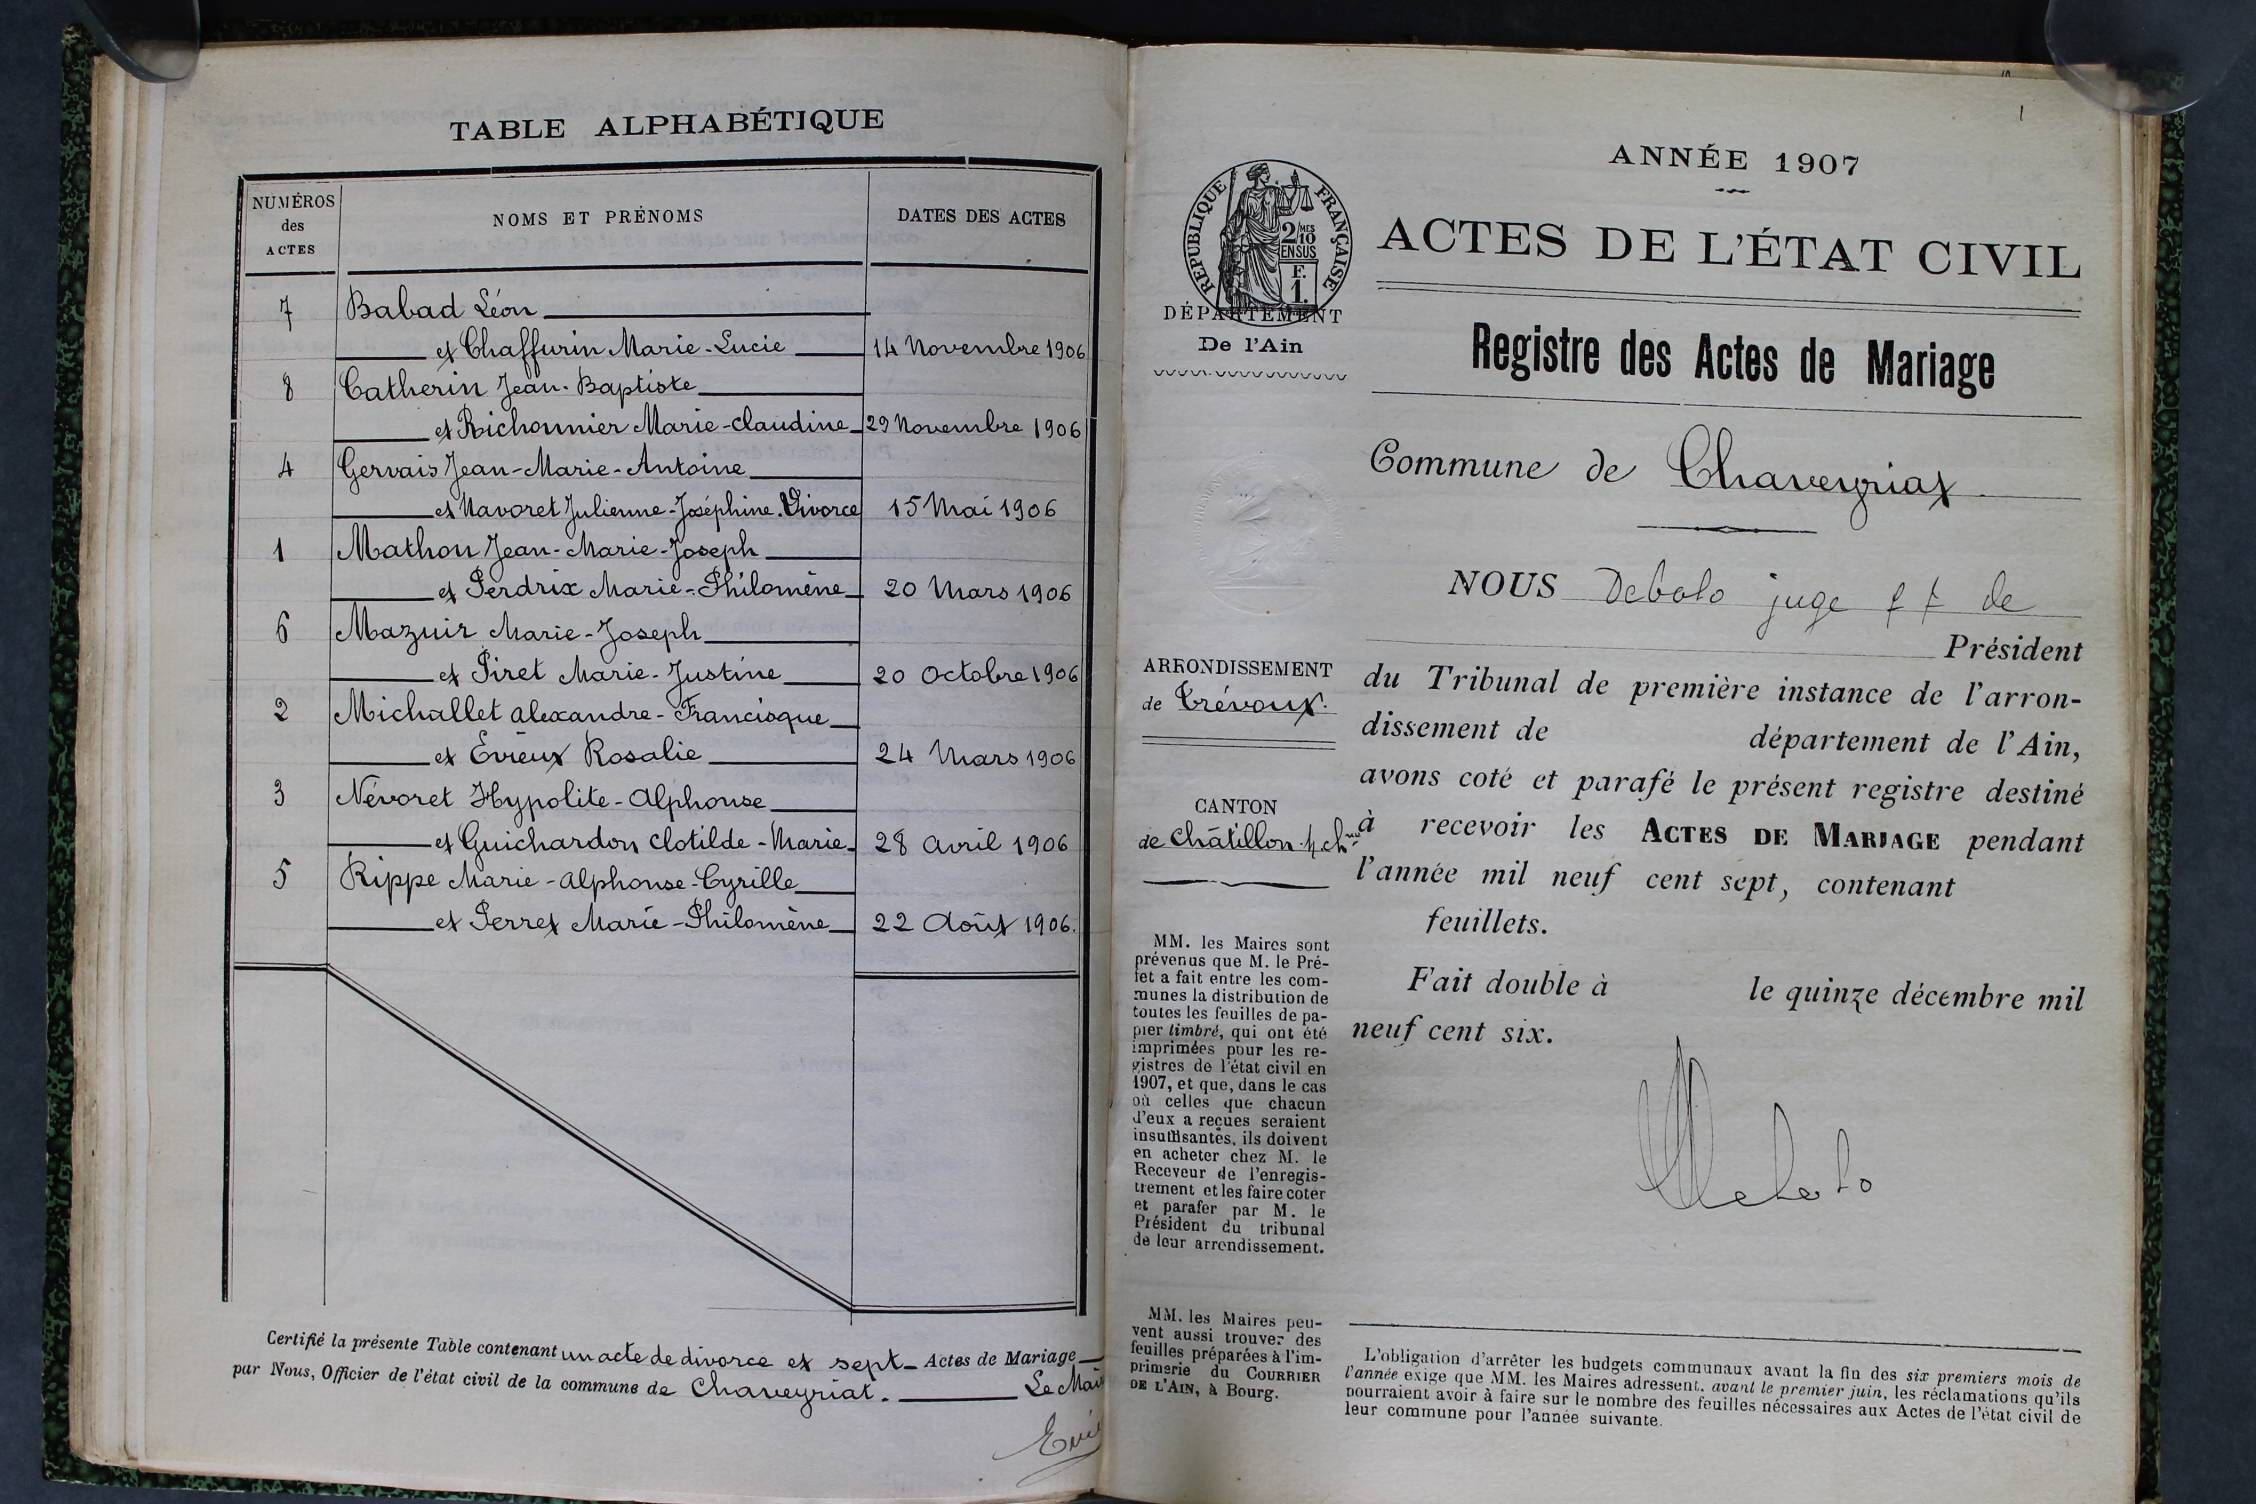 TABLE ALPHABÉTIQUE
NUMÉROS
des
ACTES
NOMS ET PRÉNOMS
DATES DES ACTES
7 Babad Léon
et Chaffurin Marie-Lucie 14 Novembre 1906
8 Catherin Jean-Baptiste
et Richonnier Marie-claudine 29 Novembre 1906
4 Gervais Jean-Marie-Antoine
et Navoret Julienne-Joséphine. Divorce 15 Mai 1906
1 Mathon Jean-Marie-Joseph
et Perdrix Marie-Philomène 20 Mars 1906
6 Mazuir Marie-Joseph
et Piret Marie-Justine 20 Octobre 1906
2 Michallet Alexandre-Francisque
et Evieux Rosalie 24 Mars 1906
3 Névoret Hypolite-Alphonse
et Guichardon Clotilde-Marie 28 Avril 1906
5 Rippe Marie-Alphonse-Cyrille
et Perret Marie-Philomène 22 Août 1906.
Certifié la présente Table contenant un acte de divorce et sept Actes de Mariage
par Nous, Officier de l'état civil de la commune de Chaveyriat. Le Mai
1
ANNÉE 1907
RÉPUBLIQUE FRANÇAISE
2/10 MES
EN SUS
F.
1.
ACTES DE L'ÉTAT CIVIL
DÉPARTEMENT
De l'Ain
Registre des Actes de Mariage
Commune de Chaveyriat
NOUS Debolo juge ff de
Président
ARRONDISSEMENT
de Trévoux.
du Tribunal de première instance de l'arron-
dissement de département de l'Ain,
avons coté et parafé le présent registre destiné
à recevoir les ACTES DE MARIAGE pendant
l'année mil neuf cent sept, contenant
feuillets.
Fait double à le quinze décembre mil
neuf cent six.
Debolo
CANTON
de Châtillon
MM. les Maires sont
prévenus que M. le Pré-
fet a fait entre les com-
munes la distribution de
toutes les feuilles de pa-
pier timbré, qui ont été
imprimées pour les re-
gistres de l'état civil en
1907, et que, dans le cas
où celles que chacun
d'eux a reçues seraient
insuffisantes, ils doivent
en acheter chez M. le
Receveur de l'enregis-
trement et les faire coter
et parafer par M. le
Président du tribunal
de leur arrondissement.
MM. les Maires peu-
vent aussi trouver des
feuilles préparées à l'im-
primerie du COURRIER
DE L'AIN, à Bourg.
L'obligation d'arrêter les budgets communaux avant la fin des six premiers mois de
l'année exige que MM. les Maires adressent, avant le premier juin, les réclamations qu'ils
pourraient avoir à faire sur le nombre des feuilles nécessaires aux Actes de l'état civil de
leur commune pour l'année suivante.